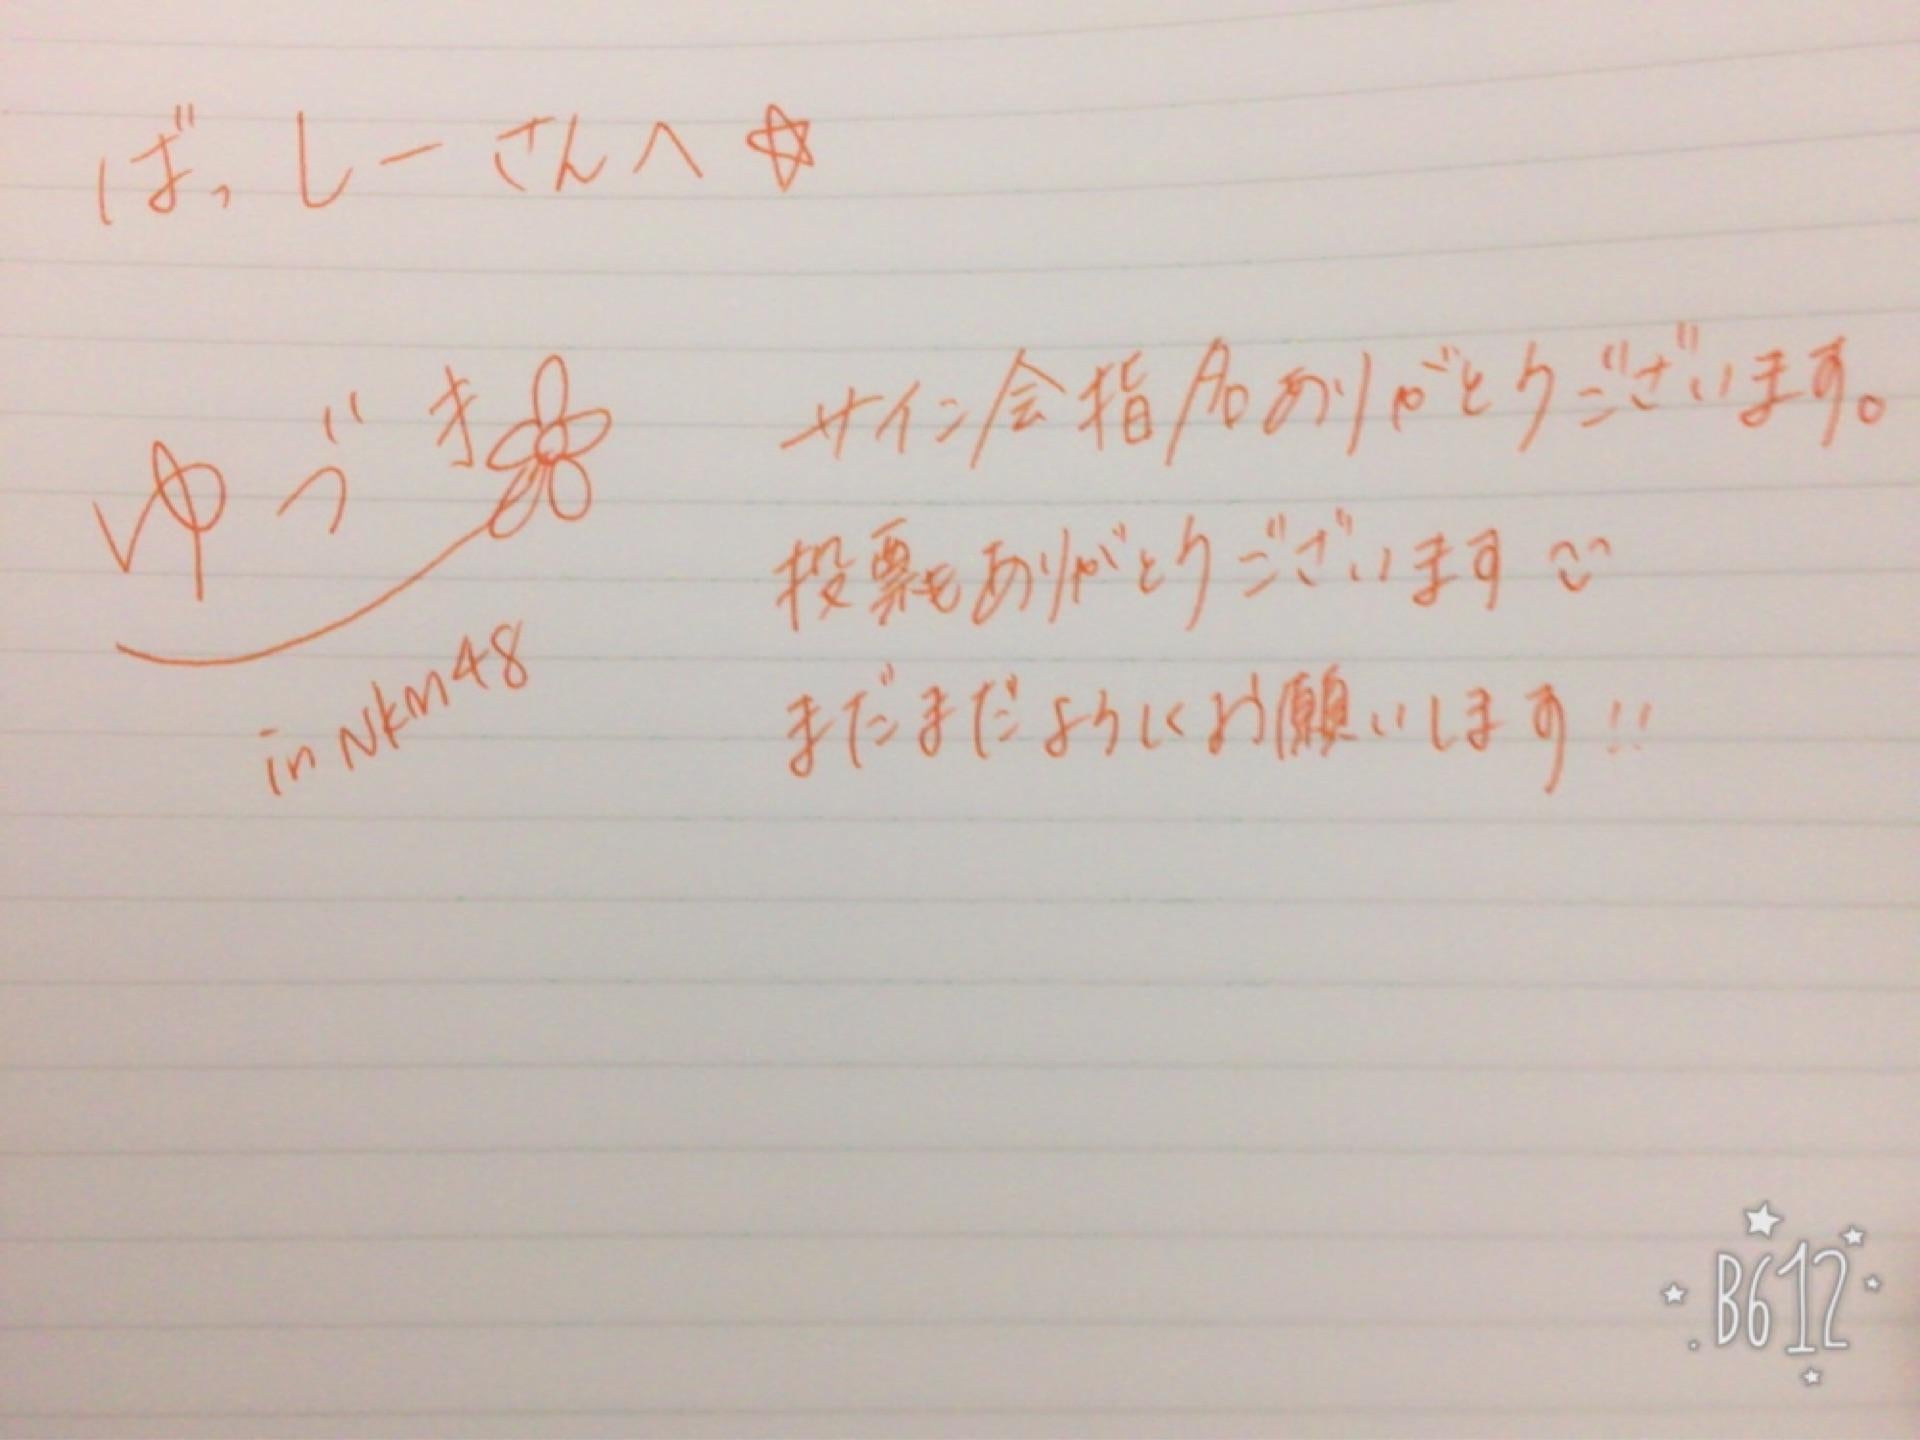 ばっしーさんへ☆
ゆづき
in NKM48
サイン会指名ありがとうございます。
投票もありがとうございます
まだまだよろしくお願いします!!
B612